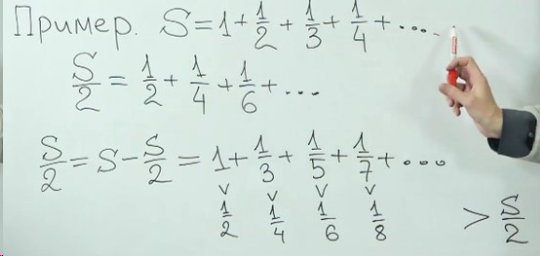 Пример. S = 1 + 1/2 + 1/3 + 1/4 + ....
S/2 = 1/2 + 1/4 + 1/6 + ...
S/2 = S - S/2 = 1 + 1/3 + 1/5 + 1/7 + ...
v v v v
1/2 1/4 1/6 1/8 > S/2